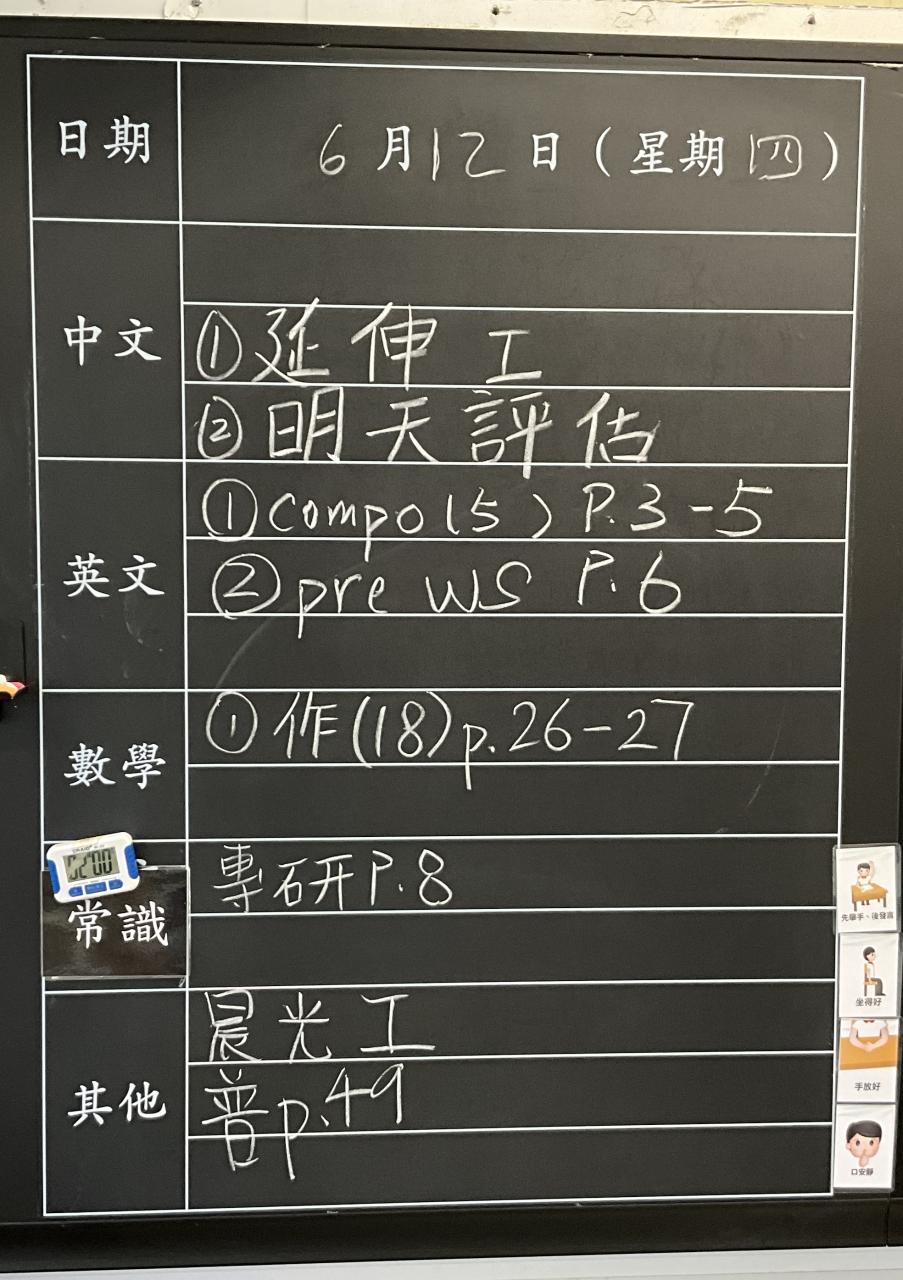 日期
6月12日（星期四）
中文
①延伸工
②明天評估
英文
①compo(5) P.3-5
②pre WS P.6
數學
①作(18)p.26-27
常識
專研P.8
其他
晨光工
普p.49
先舉手、後發言
坐得好
手放好
口安靜